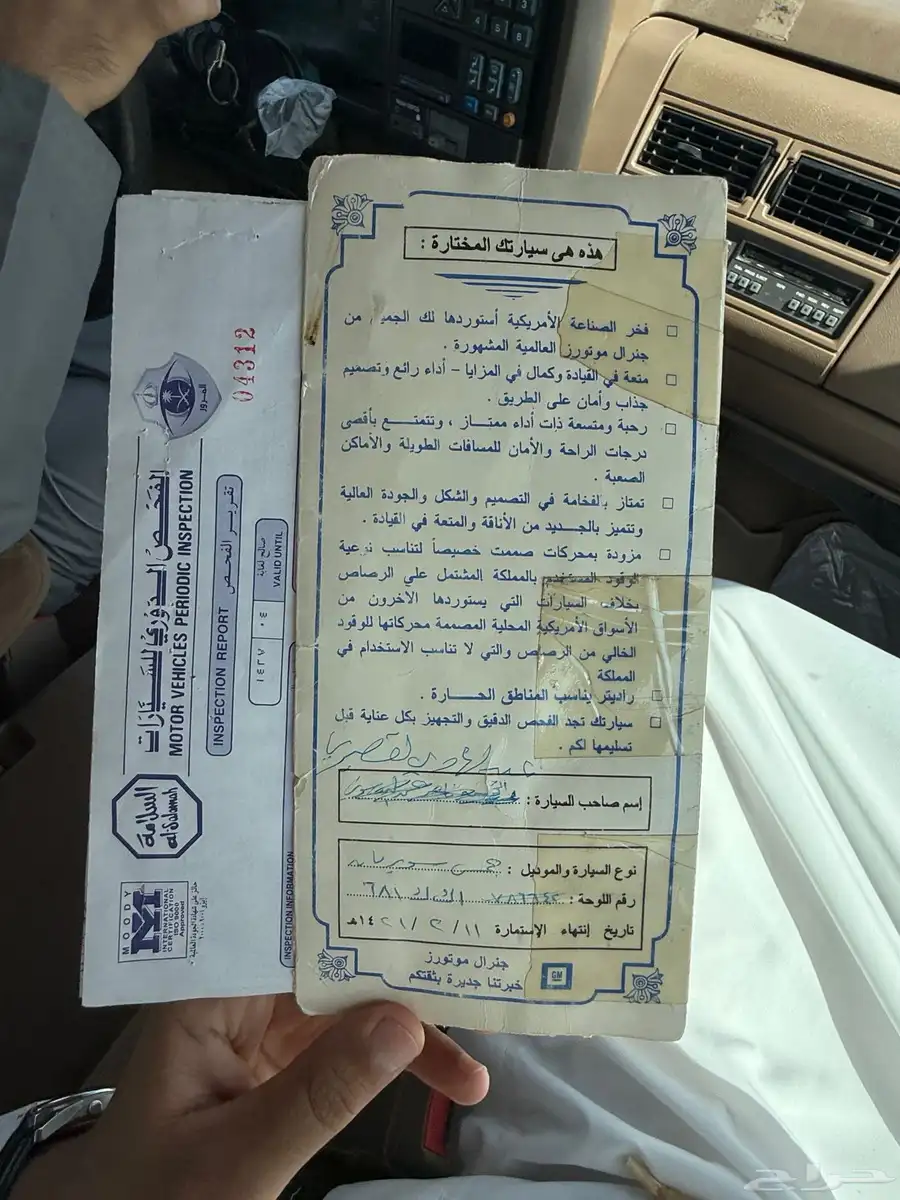 هذه هى سيارتك المختارة :
فخر الصناعة الأمريكية أستوردها لك الجميح من
جنرال موتورز العالمية المشهورة .
متعة في القيادة وكمال في المزايا - أداء رائع وتصميم
جذاب وأمان على الطريق .
رحبة ومتسعة ذات أداء ممتـاز ، وتتمتـع بأقصى
درجات الراحة والأمان للمسافات الطويلة والأماكن
الصعبة .
تمتاز بالفخامة في التصميم والشكل والجودة العالية
وتتميز بالجـديد من الأناقة والمتعة في القيادة .
مزودة بمحركات صممت خصيصاً لتناسب نوعية
الوقود المستخدم بالمملكة المشتمل علي الرصاص
بخلاف السيارات التي يستوردها الآخرون من
الأسواق الأمريكية المحلية المصممة محركاتها للوقود
الخالي من الرصاص والتي لا تناسب الاستخدام في
المملكة
راديتر يناسب المناطق الحـارة .
سيارتك تجد الفحص الدقيق والتجهيز بكل عناية قبل
تسليمها لكم .
إسم صاحب السيارة :
نوع السيارة والموديل :
رقم اللوحة : ٧٨٦٦٤٢
تاريخ إنتهاء الإستمارة ١١/٢/١٤٢١هـ
جنرال موتورز
خبرتنا جديرة بثقتكم
GM
04312
المرور
الفحص الدوري للسيارات
MOTOR VEHICLES PERIODIC INSPECTION
تقرير الفحص
INSPECTION REPORT
صالح لغاية
VALID UNTIL
٠٤
١٤٢٧
السلامة
al Salamah
MOODY
INTERNATIONAL
CERTIFICATION
ISO 9000
Approved
INSPECTION INFORMATION
حراج